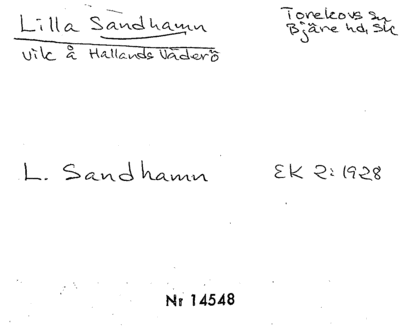 Lilla Sandhamn
vik å Hallands Väderö
Torekovs sn
Bjäre hd, Sk
L. Sandhamn
EK 2: 1928
Nr 14548